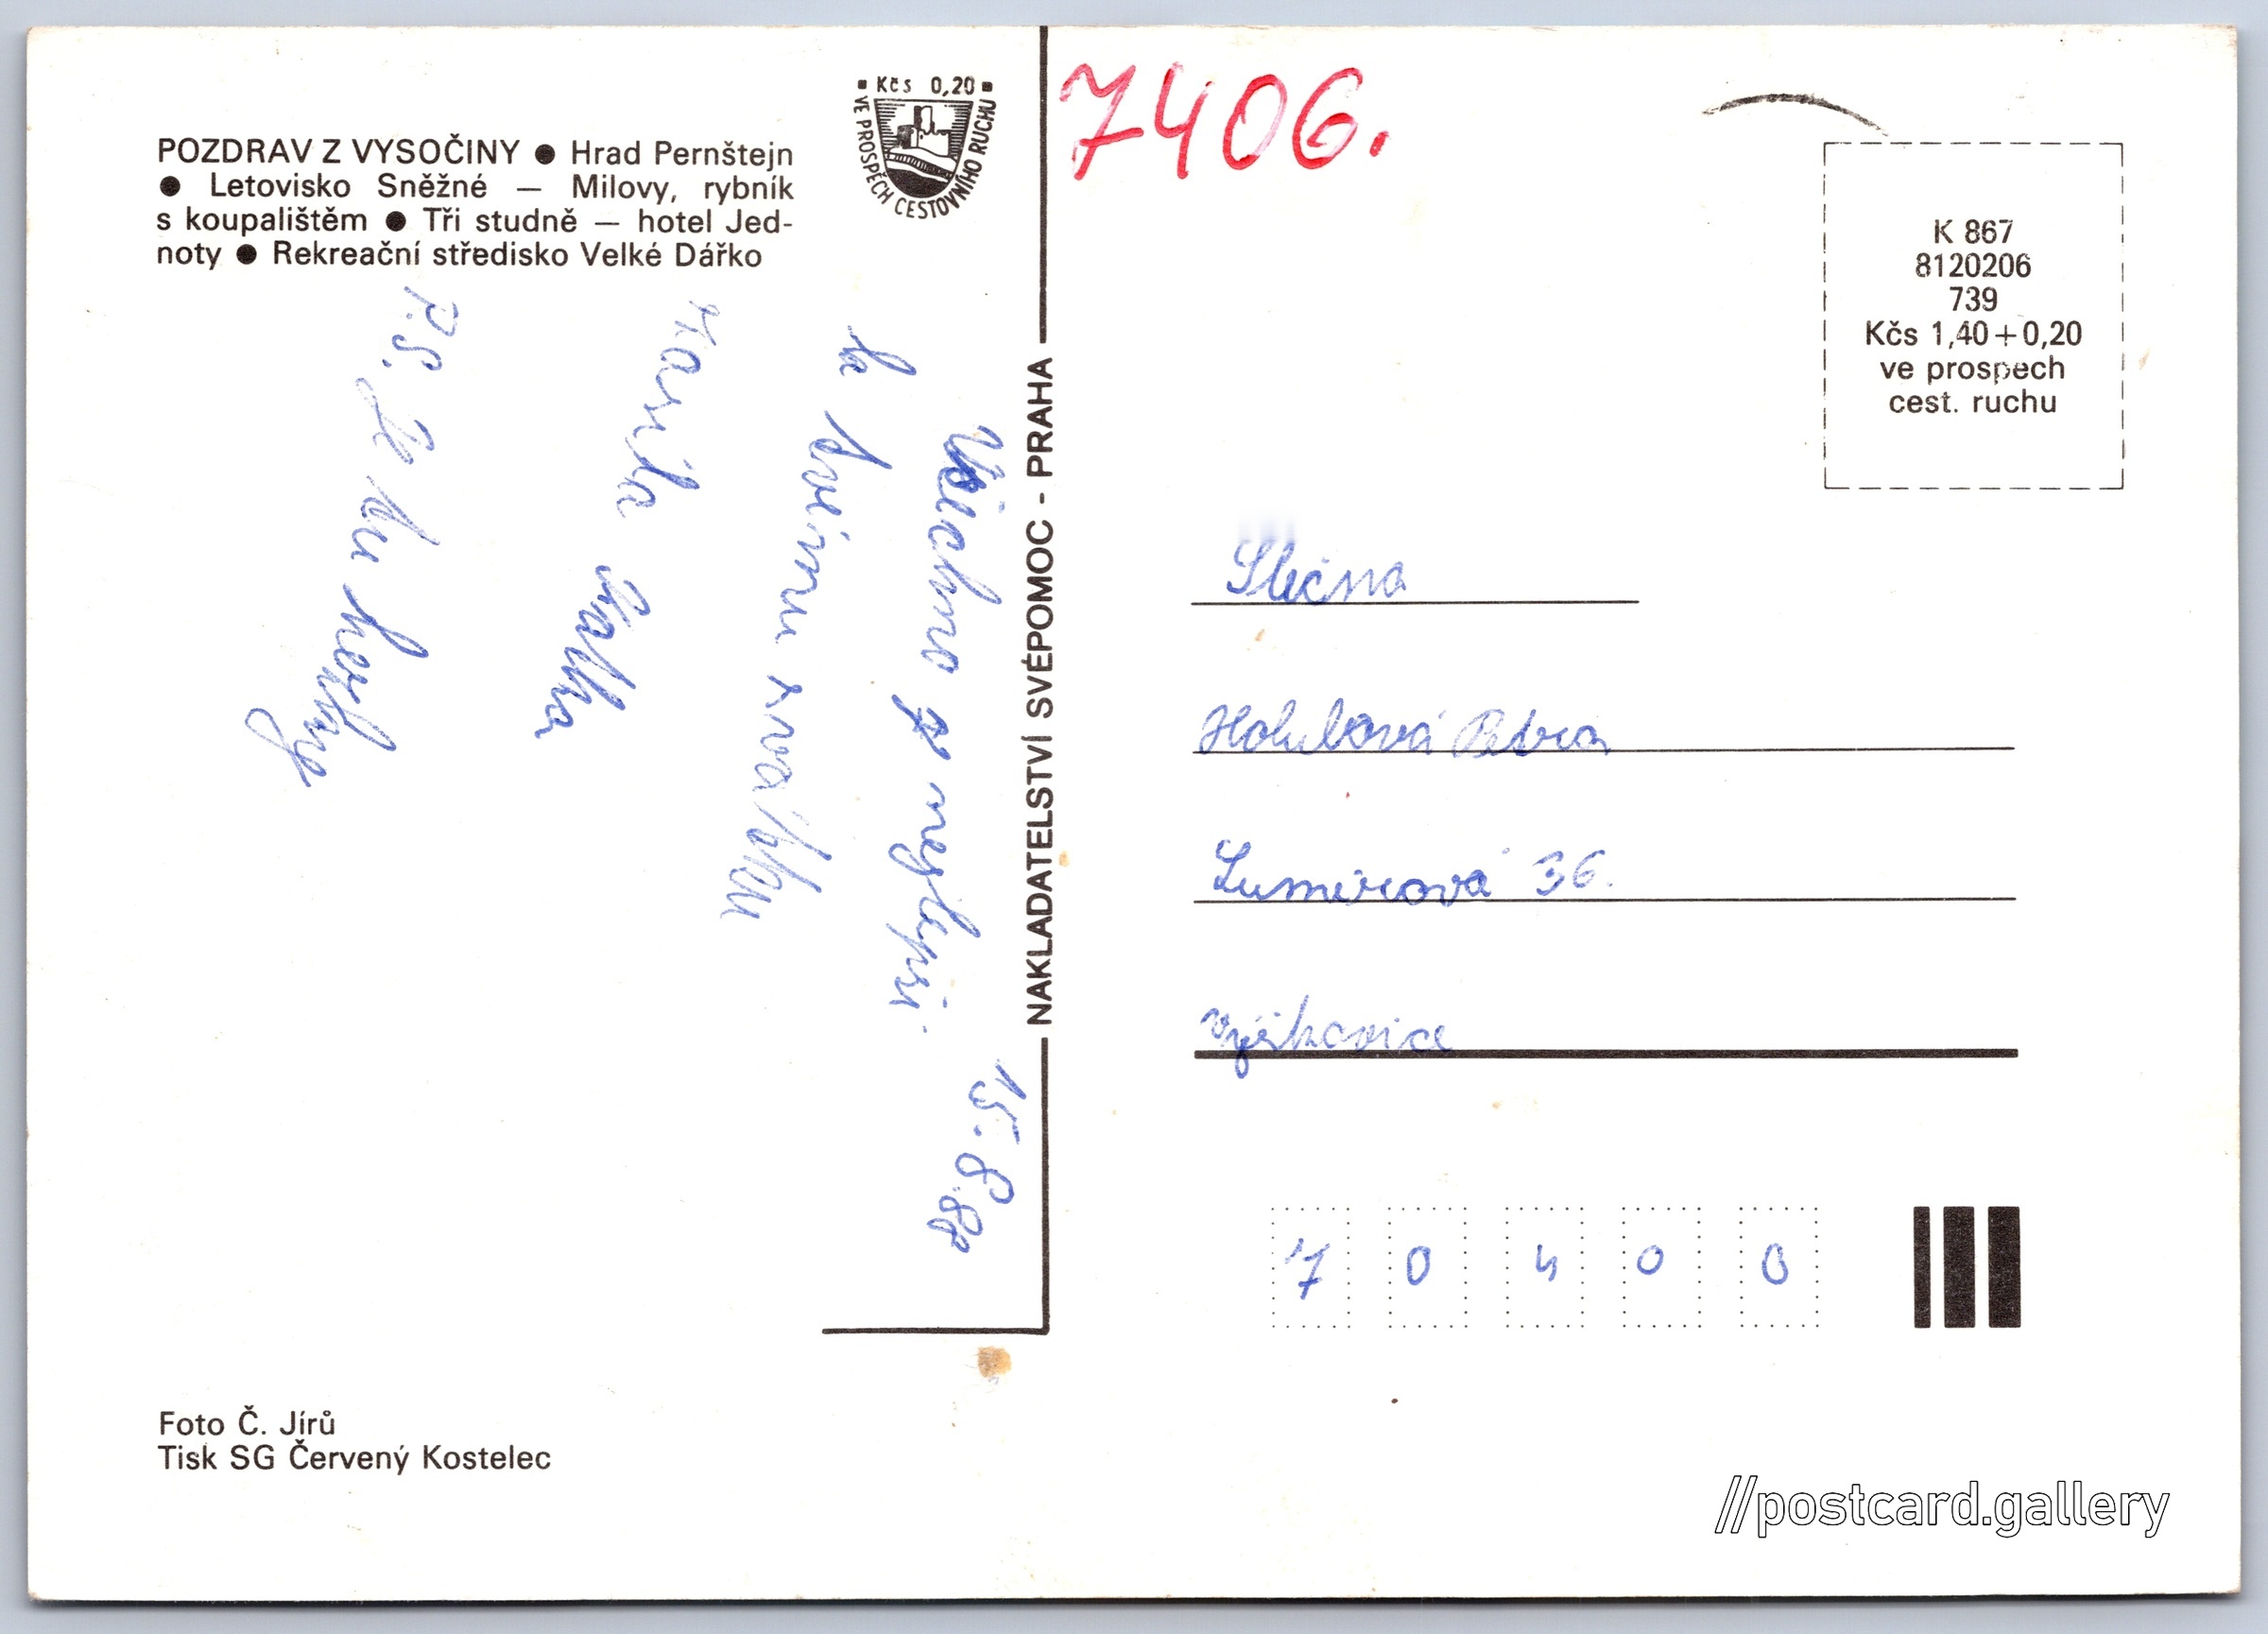 POZDRAV Z VYSOČINY ● Hrad Pernštejn
● Letovisko Sněžné — Milovy, rybník
s koupalištěm ● Tři studně — hotel Jed-
noty ● Rekreační středisko Velké Dářko
Kčs 0,20
VE PROSPĚCH CESTOVNÍHO RUCHU
15.8.88
Všechno nejlepší
k tvému svátku
Katka
P.S. Je tu
NAKLADATELSTVÍ SVÉPOMOC - PRAHA
Foto Č. Jírů
Tisk SG Červený Kostelec
7406.
K 867
8120206
739
Kčs 1,40+0,20
ve prospech
cest. ruchu
Slečna
Holubová Petra
Lumírová 36.
Výškovice
7 0 4 0 0
//postcard.gallery